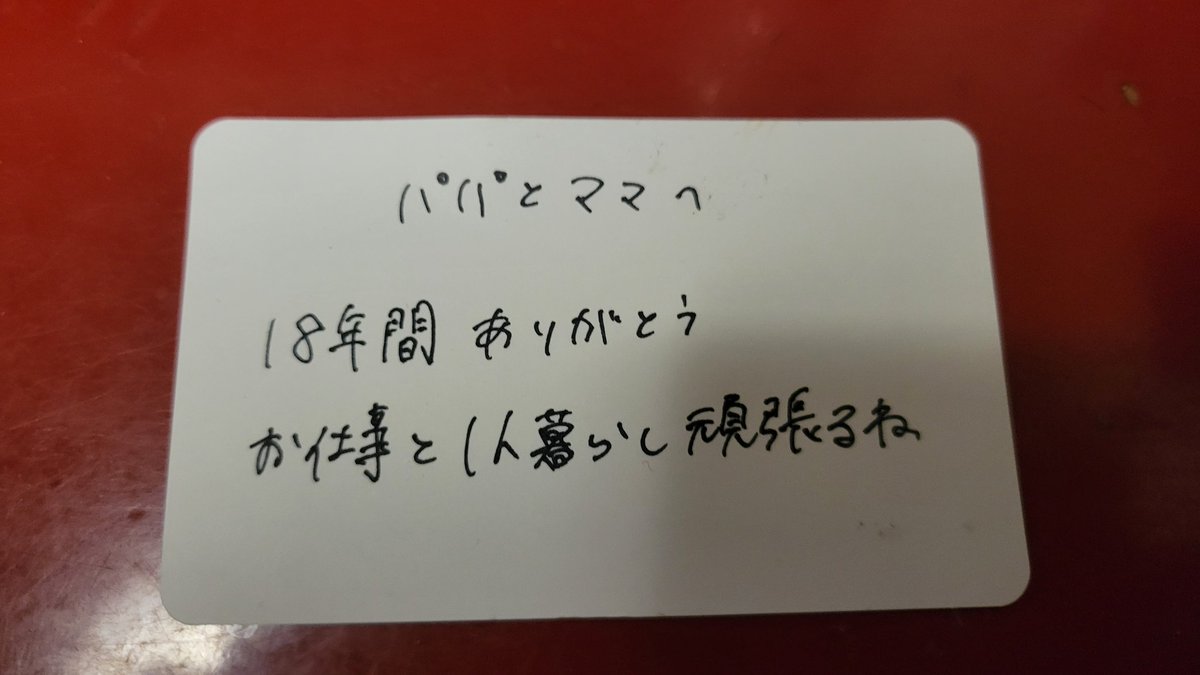 パパとママへ
18年間 ありがとう
お仕事と1人暮らし頑張るね